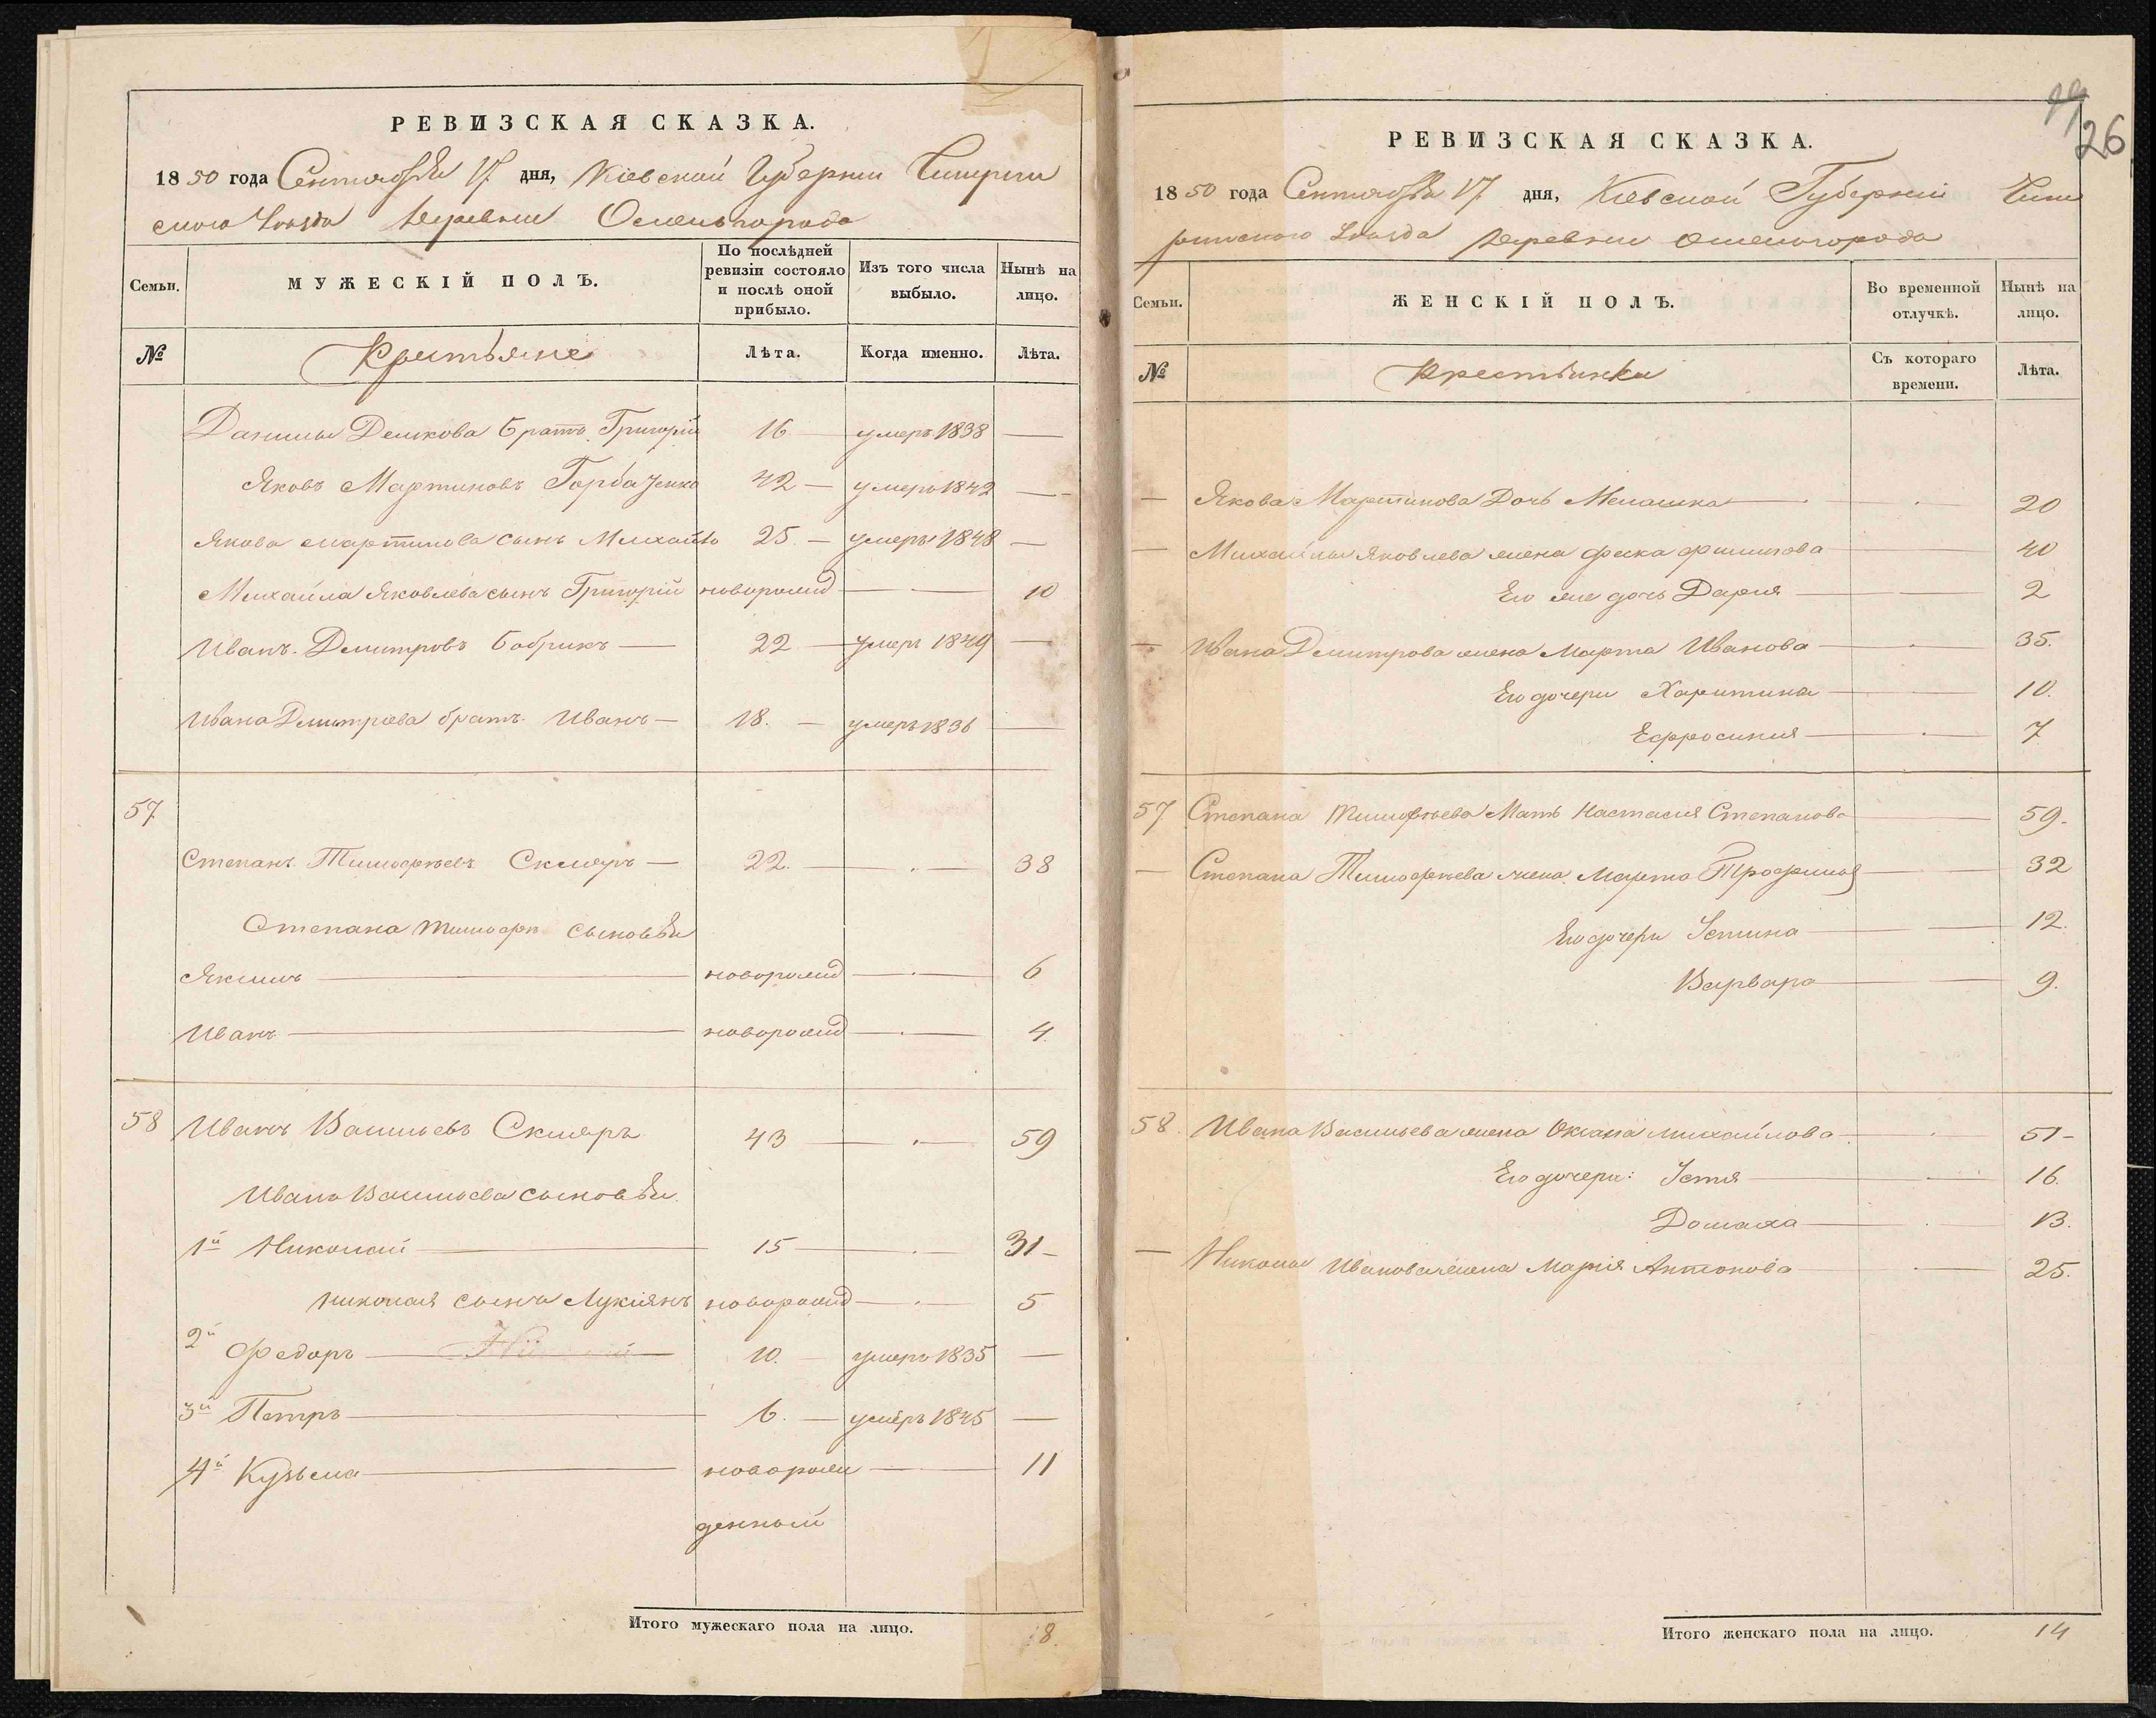 РЕВИЗСКАЯ СКАЗКА.
1850 года Сентября 17 дня, Кіевской Губерніи Чигирин
скаго Уѣзда деревни Осетногорода
Семьи.
МУЖЕСКІЙ ПОЛЪ.
По послѣдней ревизіи состояло и послѣ оной прибыло.
Изъ того числа выбыло.
Нынѣ на лицо.
№
Крестьяне
Лѣта.
Когда именно.
Лѣта.
Данилы Демкова братъ Григорій 16 умеръ 1838
Яковъ Мартиновъ Горбаченко 42 умеръ 1842
Якова Мартинова сынъ Михайло 25 умеръ 1848
Михайла Яковлева сынъ Григорій новорожд 10
Иванъ Дмитровъ Бобрикъ 22 умеръ 1849
Ивана Дмитріева братъ Иванъ 18. умеръ 1836
57
Степанъ Тимофѣевъ Скляръ 22. 38
Степана Тимофѣ сыновья
Якимъ новорожд 6
Иванъ новорожд 4.
58 Иванъ Васильевъ Скляръ 43 59
Ивана Васильева сыновья.
1й Николай 15 31
Николая сынъ Лукіянъ новорожд 5
2й Федоръ 10. умеръ 1835
3й Петръ 6. умеръ 1845
4й Кузьма новорож 11
денный
Итого мужескаго пола на лицо. 8.
99
26
РЕВИЗСКАЯ СКАЗКА.
1850 года Сентября 17 дня, Кіевской Губерніи Чиги
ринскаго Уѣзда деревни Осетногорода
Семьи.
ЖЕНСКІЙ ПОЛЪ.
Во временной отлучкѣ.
Нынѣ на лицо.
№
Крестьянки
Съ котораго времени.
Лѣта.
Якова Мартинова дочь Мелашка 20
Михайлы Яковлева жена Феска Филипова 40
Его же дочь Дарія 2
Ивана Дмитрова жена Марта Иванова 35.
Его дочери Харитина 10.
Ефросинія 7
57 Степана Тимофѣева Мать Настасія Степанова 59.
Степана Тимофѣева жена Марта Трофимов 32
Его дочери Устина 12.
Варвара 9.
58. Ивана Васильева жена Оксана Михайлова 51
Его дочери: Устя 16.
Домаха 13.
Николая Иванова жена Марія Антонова 25.
Итого женскаго пола на лицо. 14